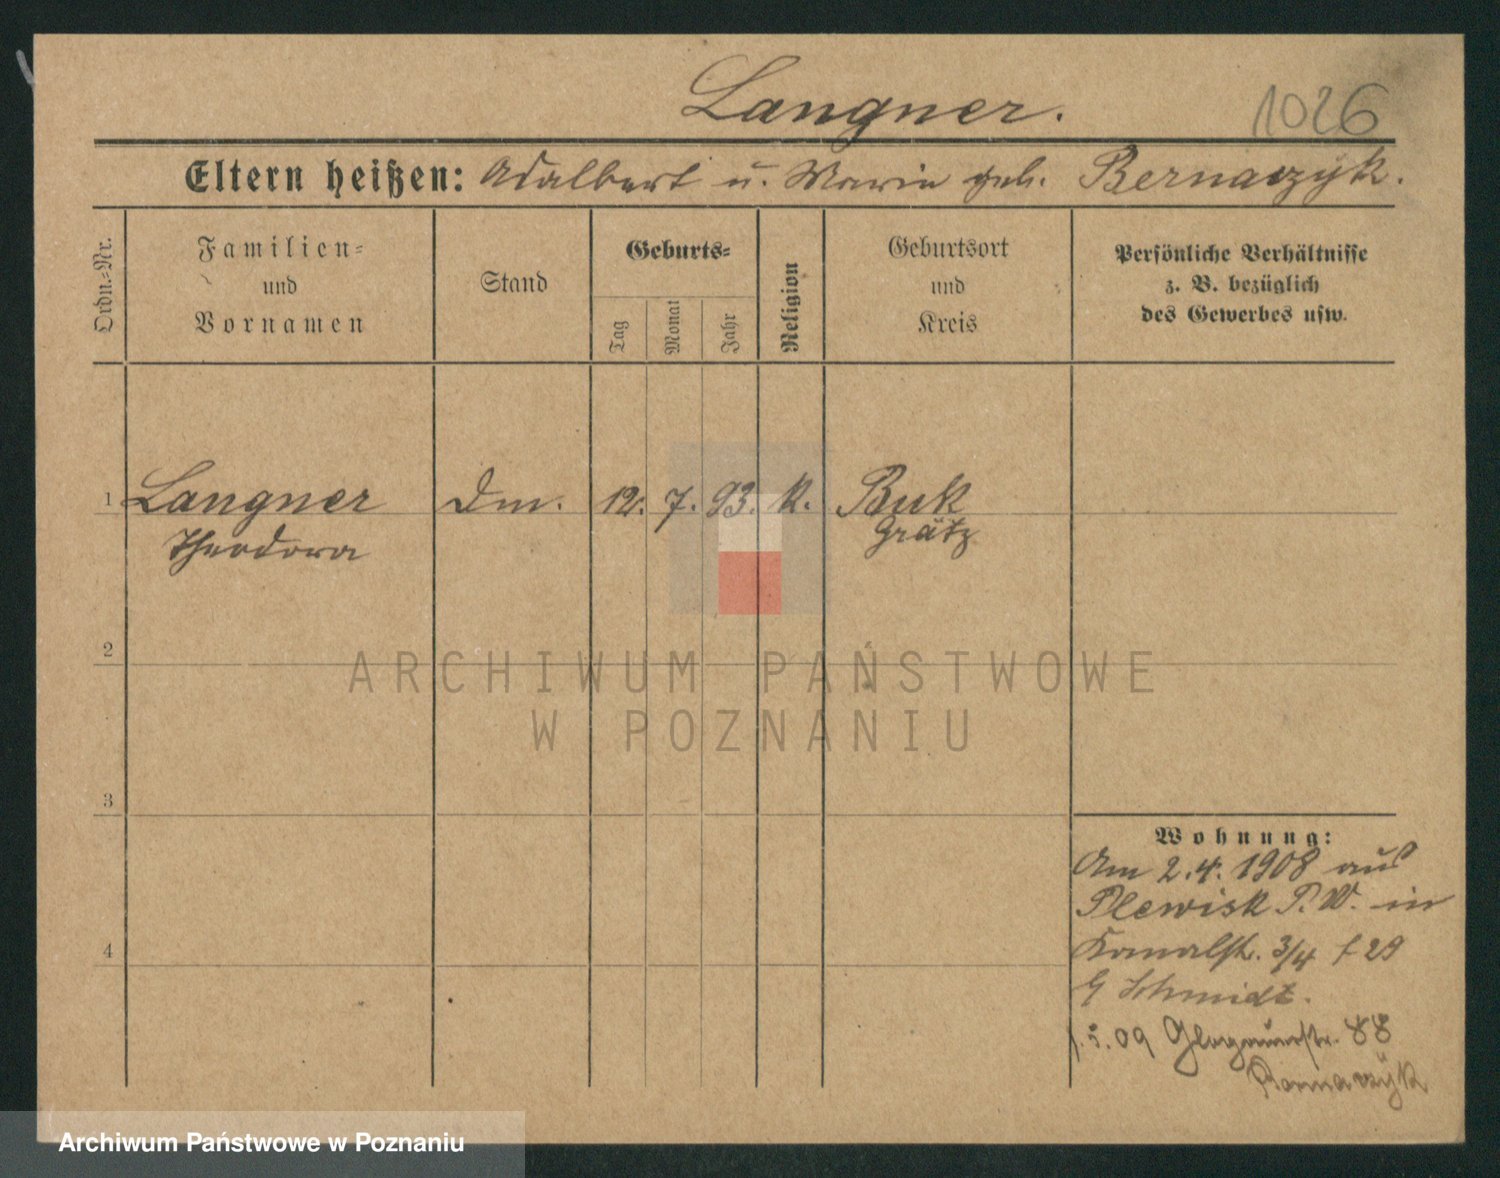 Langner.
1026
Eltern heißen: Adalbert u. Maria geb. Bernaczyk.
Ordn.=Nr.
Familien=
und
Vornamen
Stand
Geburts=
Tag
Monat
Jahr
Religion
Geburtsort
und
Kreis
Persönliche Verhältnisse
z. B. bezüglich
des Gewerbes usw.
1 Langner Dm. 12. 7. 93. k. Buk
Theodora Grätz
2
ARCHIWUM PAŃSTWOWE
W POZNANIU
3
Wohnung:
Am 2.4.1908 aus
Plewisk P. W. in
4
Kanalstr. 3/4 f 29
Schmidt.
1.5.09 Glogauerstr. 88
Bernaczyk
Archiwum Państwowe w Poznaniu